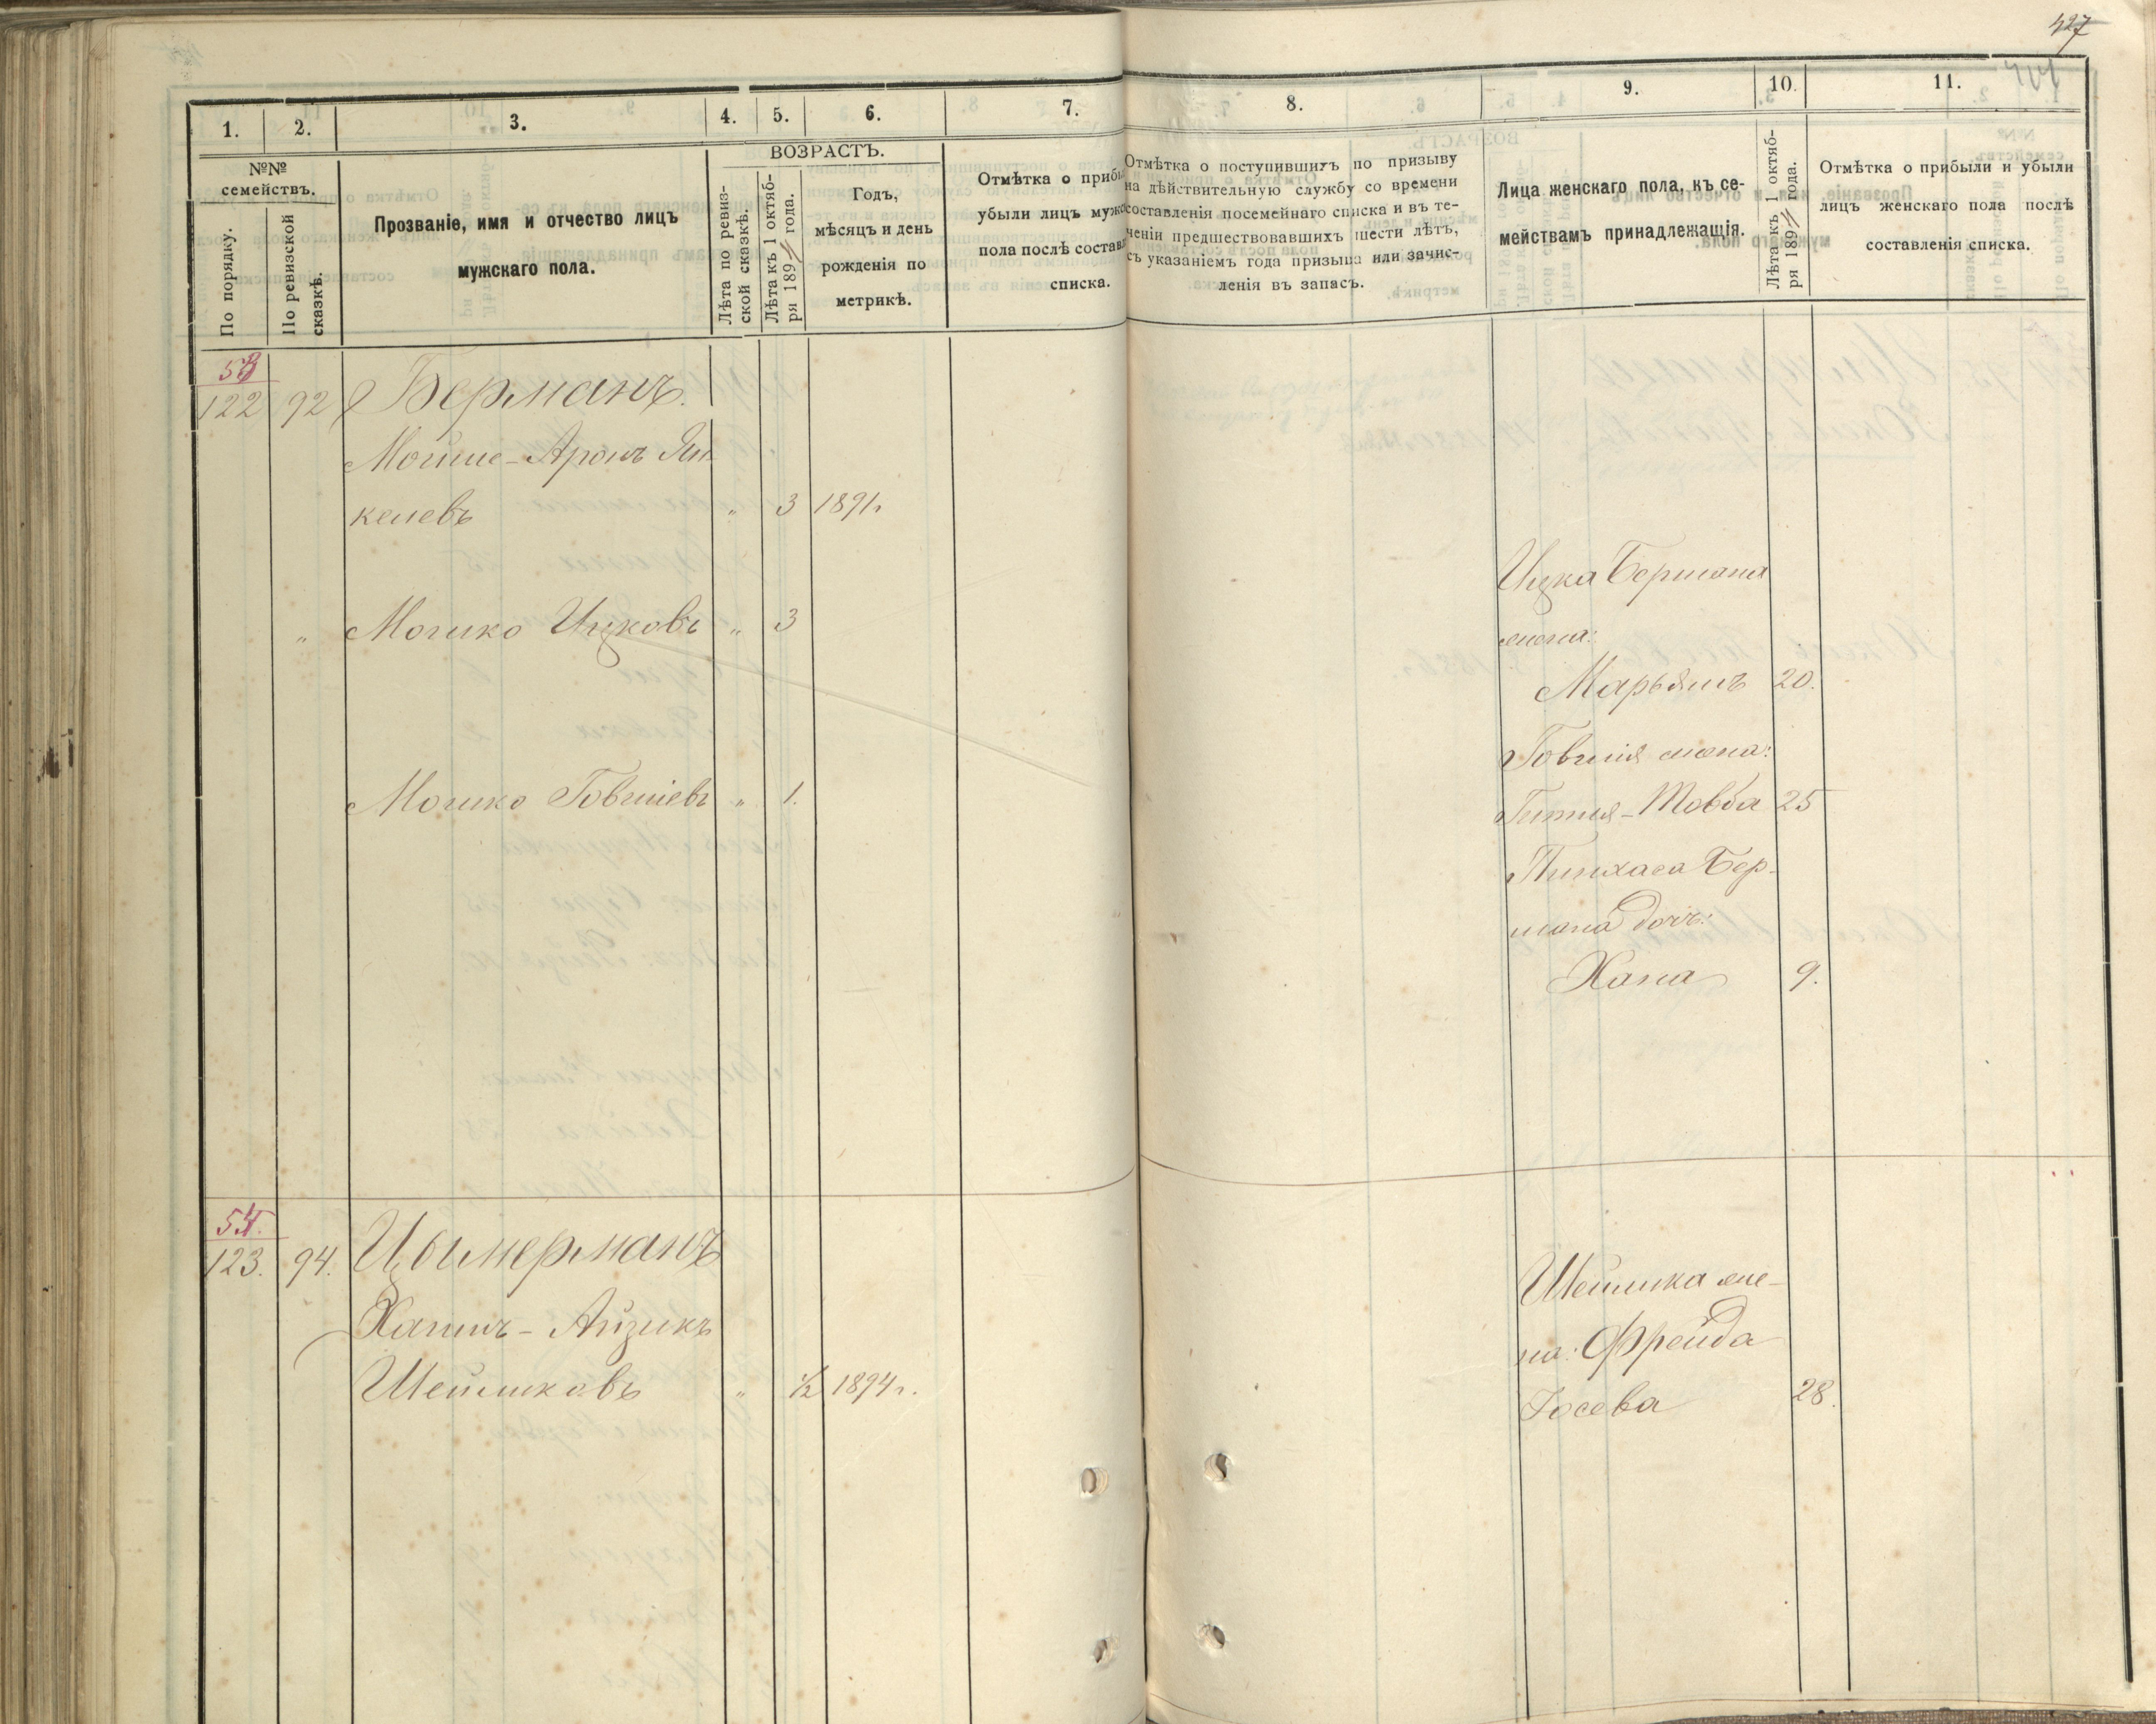 427
1. 2. 3. 4. 5. 6. 7. 8. 9. 10. 11.
№№ семействъ.
По порядку.
По ревизской сказкѣ.
Прозваніе, имя и отчество лицъ
мужскаго пола.
ВОЗРАСТЪ.
Лѣта по ревиз-
ской сказкѣ.
Лѣта къ 1 октяб-
ря 189 года.
Годъ,
мѣсяцъ и день
рожденія по
метрикѣ.
Отмѣтка о прибы
убыли лицъ муж
пола послѣ состав
списка.
Отмѣтка о поступившихъ по призыву
на дѣйствительную службу со времени
составленія посемейнаго списка и въ те-
ченіи предшествовавшихъ шести лѣтъ,
съ указаніемъ года призыва или зачис-
ленія въ запасъ.
Лица женскаго пола, къ се-
мействамъ принадлежащія.
Лѣта къ 1 октяб-
ря 189 года.
Отмѣтка о прибыли и убыли
лицъ женскаго пола послѣ
составленія списка.
53
122 92 Берманъ.
Мойше-Аронъ Ян
келевъ " 3 1891г
Ицка Бермана
жена:
" Мошко Ицковъ " 3
Марьямъ 20.
Говшія жена:
Мошко Говшіевъ " 1.
Гитля-Товба 25
Пинхаса Бер-
мана дочь:
Хана 9.
54.
123. 94. Цымерманъ
Хаимъ-Айзикъ
Шейликовъ " ½ 1894г.
Шейлика же-
на: Фрейда
Іосева 28.